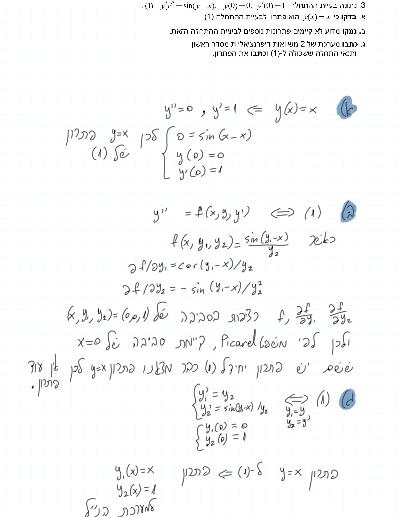 3. נתונה בעיית ההתחלה (1) . y'y'' = sin(y-x), y(0)=0, y'(0)=1
א. בדקו כי y(x) = x הוא פתרון לבעיית ההתחלה (1).
ב. נמקו מדוע לא קיימים פתרונות נוספים לבעיית ההתחלה הזאת.
ג. כתבו מערכת של 2 משוואות דיפרנציאליות מסדר ראשון
ותנאי התחלה ששקולה ל-(1) וכתבו את הפתרון.
א y(x)=x ⇒ y'=1 , y''=0
0 = sin(x-x)
y(0)=0
y'(0)=1
לכן y=x פתרון
של (1)
ב (1) ⇔ y'' = f(x,y,y')
כאשר f(x,y₁,y₂) = sin(y₁-x)/y₂
∂f/∂y₁ = cos(y₁-x)/y₂
∂f/∂y₂ = -sin(y₁-x)/y₂²
f, ∂f/∂y₁, ∂f/∂y₂ רציפות בסביבה של (x,y₁,y₂)=(0,0,1)
ולכן לפי משפט Picard, קיימת סביבה של x=0
ששם יש פתרון יחיד ל(1) כבר מצאנו פתרון y=x לכן אין עוד
פתרון.
ג (1) ⇔
y₁=y, y₂=y'
y₁' = y₂
y₂' = sin(y₁-x)/y₂
y₁(0)=0
y₂(0)=1
פתרון y=x ל-(1) ⇐ פתרון
y₁(x)=x
y₂(x)=1
למערכת הנ"ל